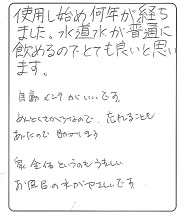 使用し始め何年が経ち
ました。水道水が普通に
飲めるのでとても良いと思い
ます。
自動メンテがいいです。
めんどくさがりなので、忘れることも
あるので助かります
家全体というのもうれしい
お風呂の水がやさしいです